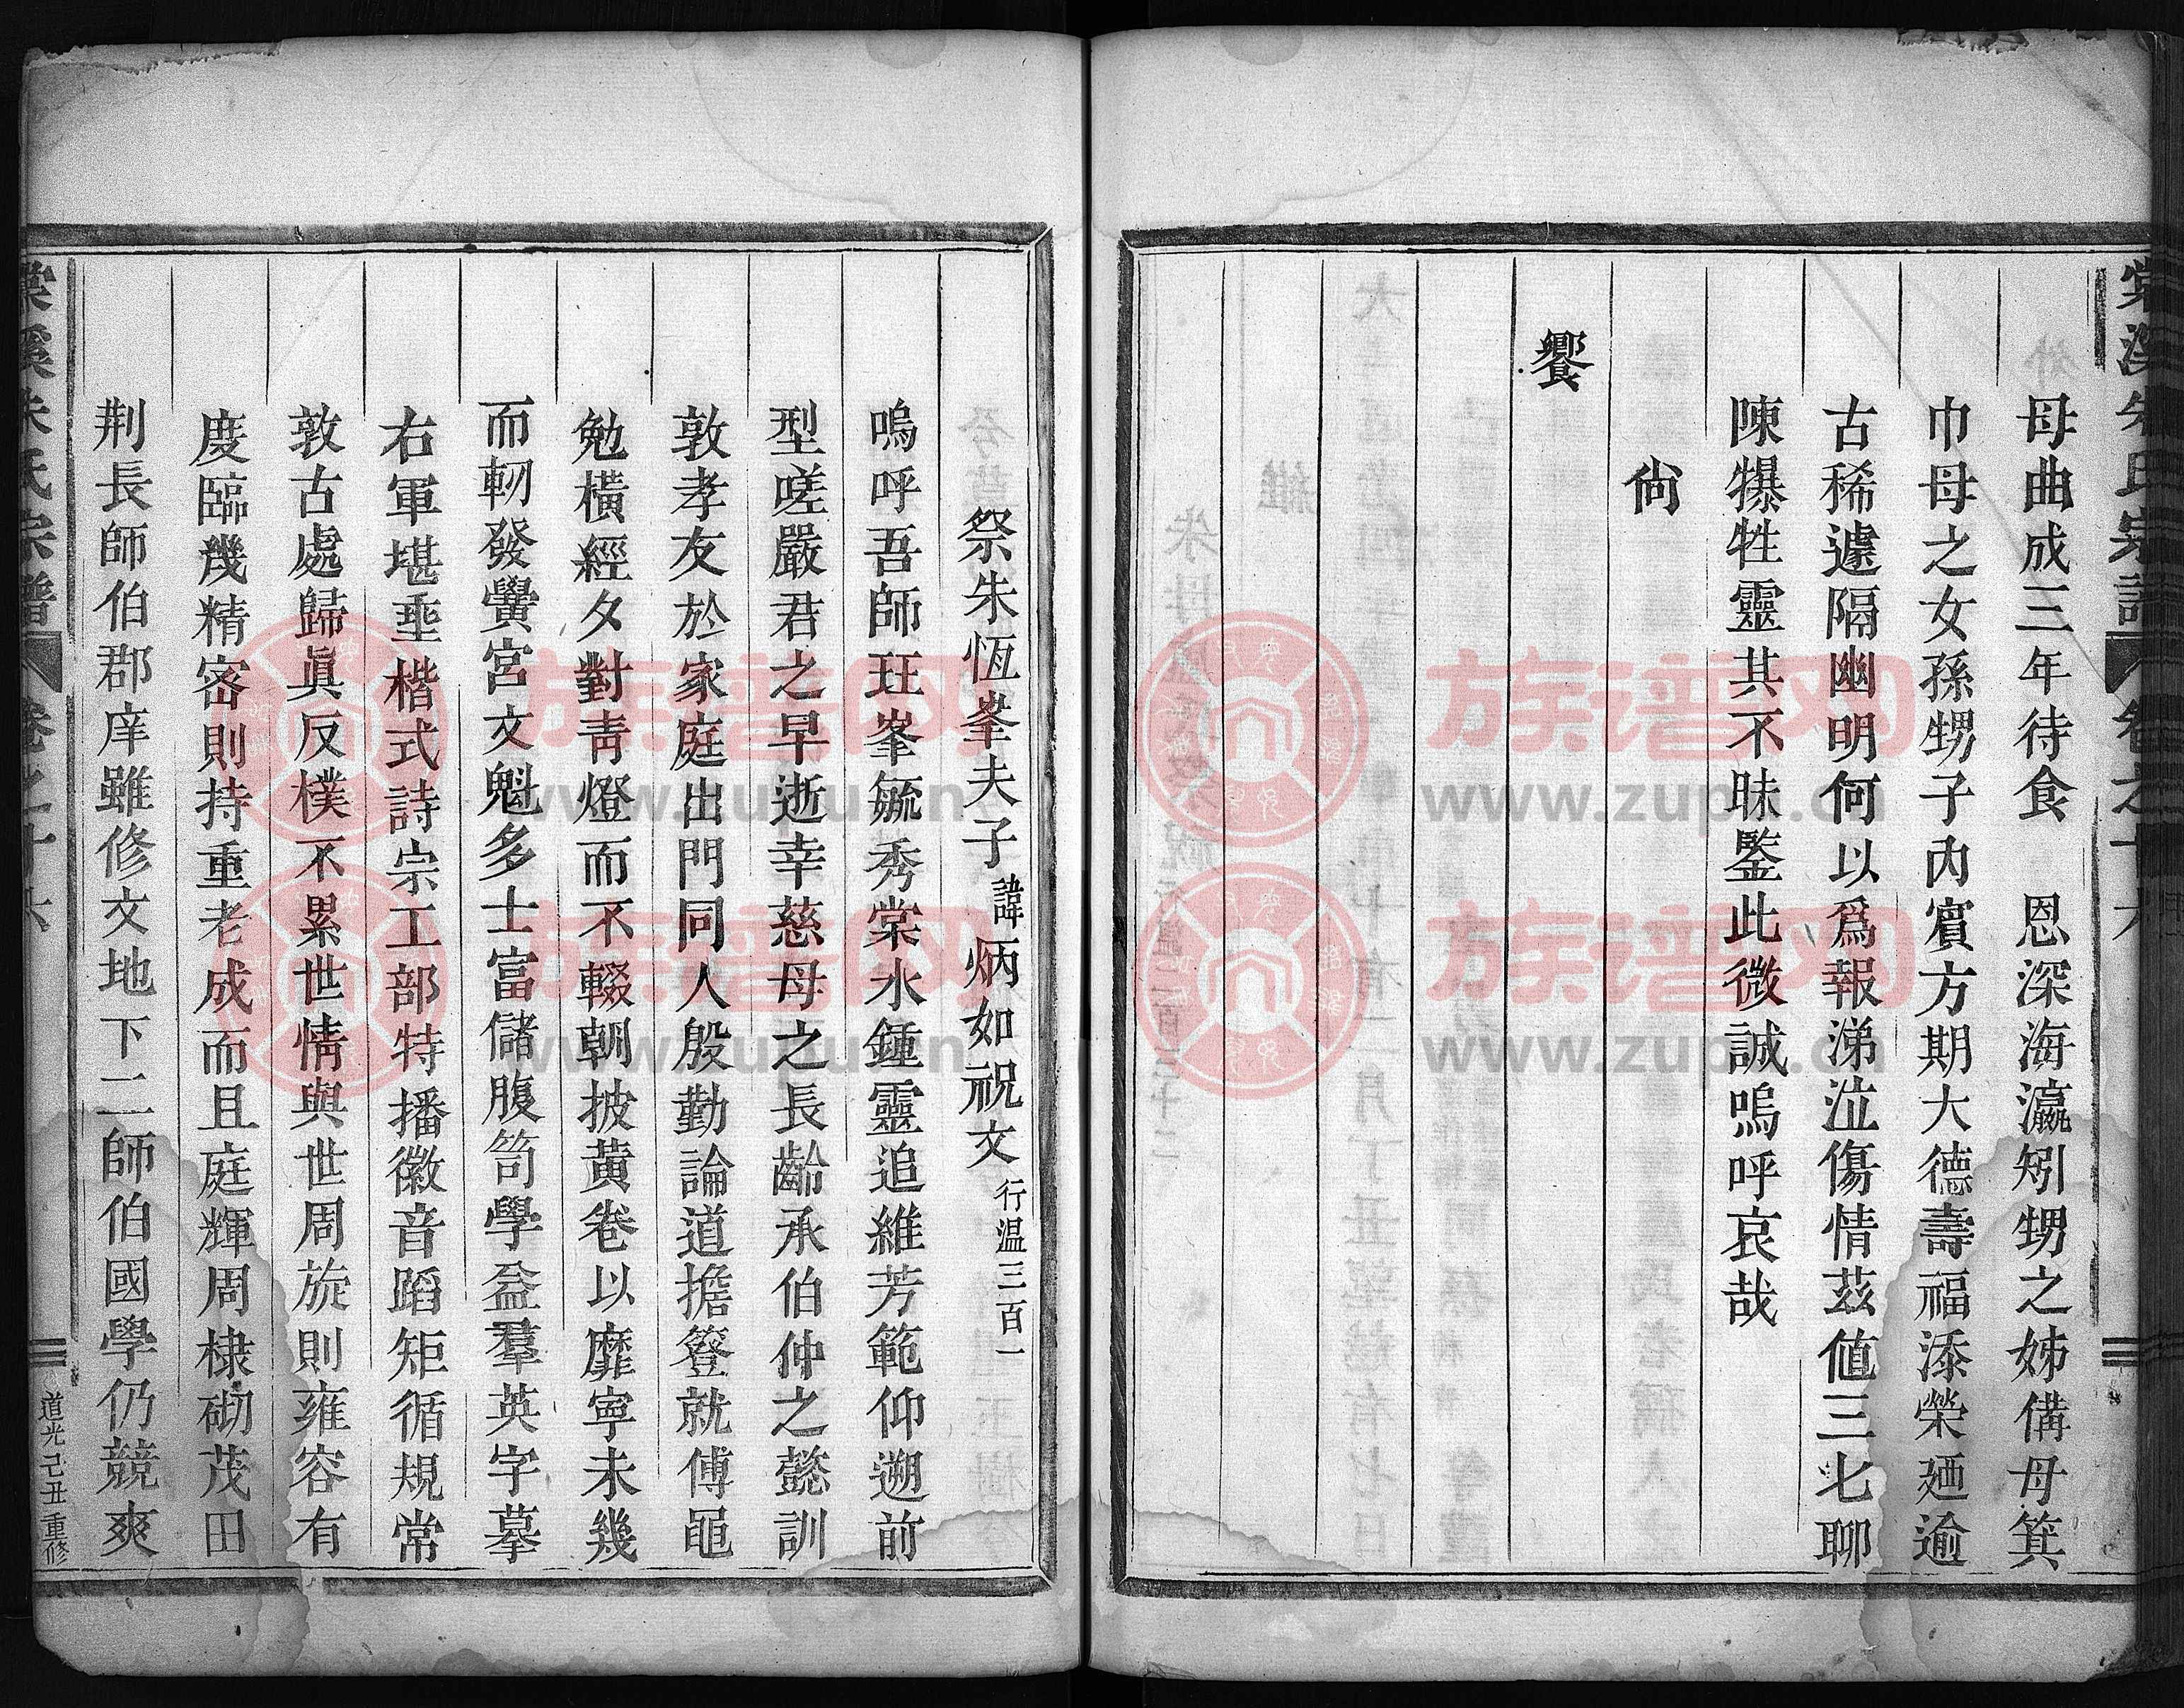 棠溪朱氏宗譜 卷之十六
母曲成三年待食 恩深海瀛矧甥之姊備母箕
巾母之女孫甥子內賓方期大德壽福添榮廼逾
古稀遽隔幽明何以爲報涕泣傷情茲値三七聊
陳犦牲靈其不昧鑒此微誠嗚呼哀哉
尙
饗
祭朱恆峯夫子諱炳如祝文 行溫三百一
嗚呼吾師珏峯毓秀棠水鍾靈追維芳範仰遡前
型嗟嚴君之早逝幸慈母之長齡承伯仲之懿訓
敦孝友於家庭出門同人殷勤論道擔簦就傅黽
勉橫經夕對靑燈而不輟朝披黄卷以靡寧未幾
而軔發黌宮文魁多士富儲腹笥學益羣英字摹
右軍堪垂楷式詩宗工部特播徽音蹈矩循規常
敦古處歸眞反樸不累世情與世周旋則雍容有
度臨幾精密則持重老成而且庭輝周棣砌茂田
荆長師伯郡庠雖修文地下二師伯國學仍競爽
棠溪朱氏宗譜 卷之十六 道光己丑重修
族谱网
www.zupu.cn
族谱网
www.zupu.cn
族谱网
www.zupu.cn
族谱网
www.zupu.cn